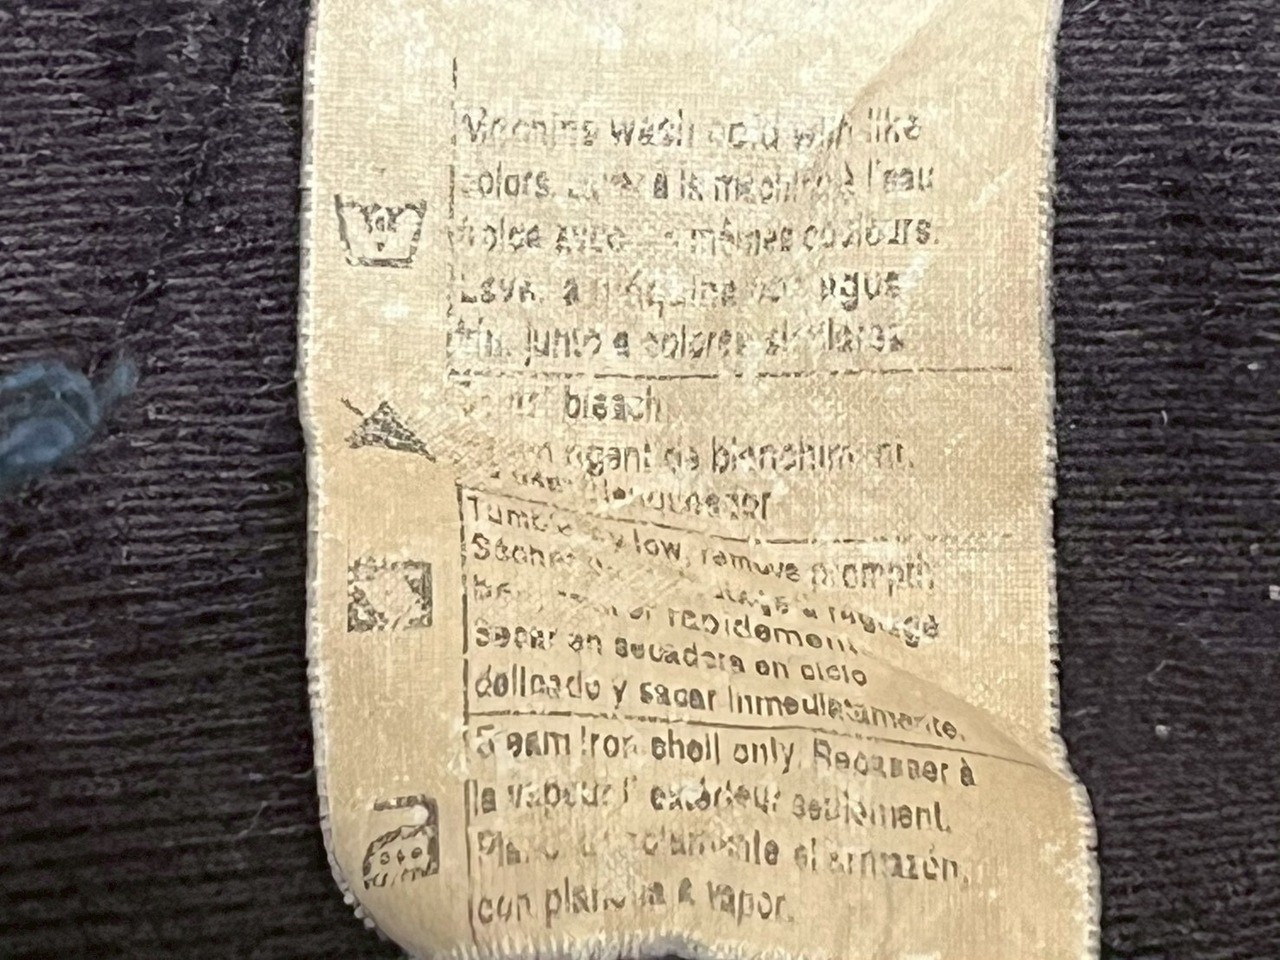 Machine wash cold with like
colors. Laver à la machine à l'eau
froide avec les mêmes couleurs.
Lavar a máquina con agua
fría, junto a colores similares.
bleach
agent de blanchiment.
blanqueador
Tumble dry low, remove promptly.
Sécher à réglage
bas, et rapidement.
Secar en secadora en ciclo
delicado y sacar inmediatamente.
Steam iron shell only. Repasser à
la vapeur l'extérieur seulement.
Planchar solamente el armazón,
con plancha a vapor.